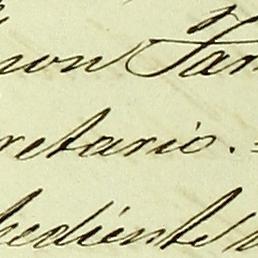 mon Fam
retario.=
pediente